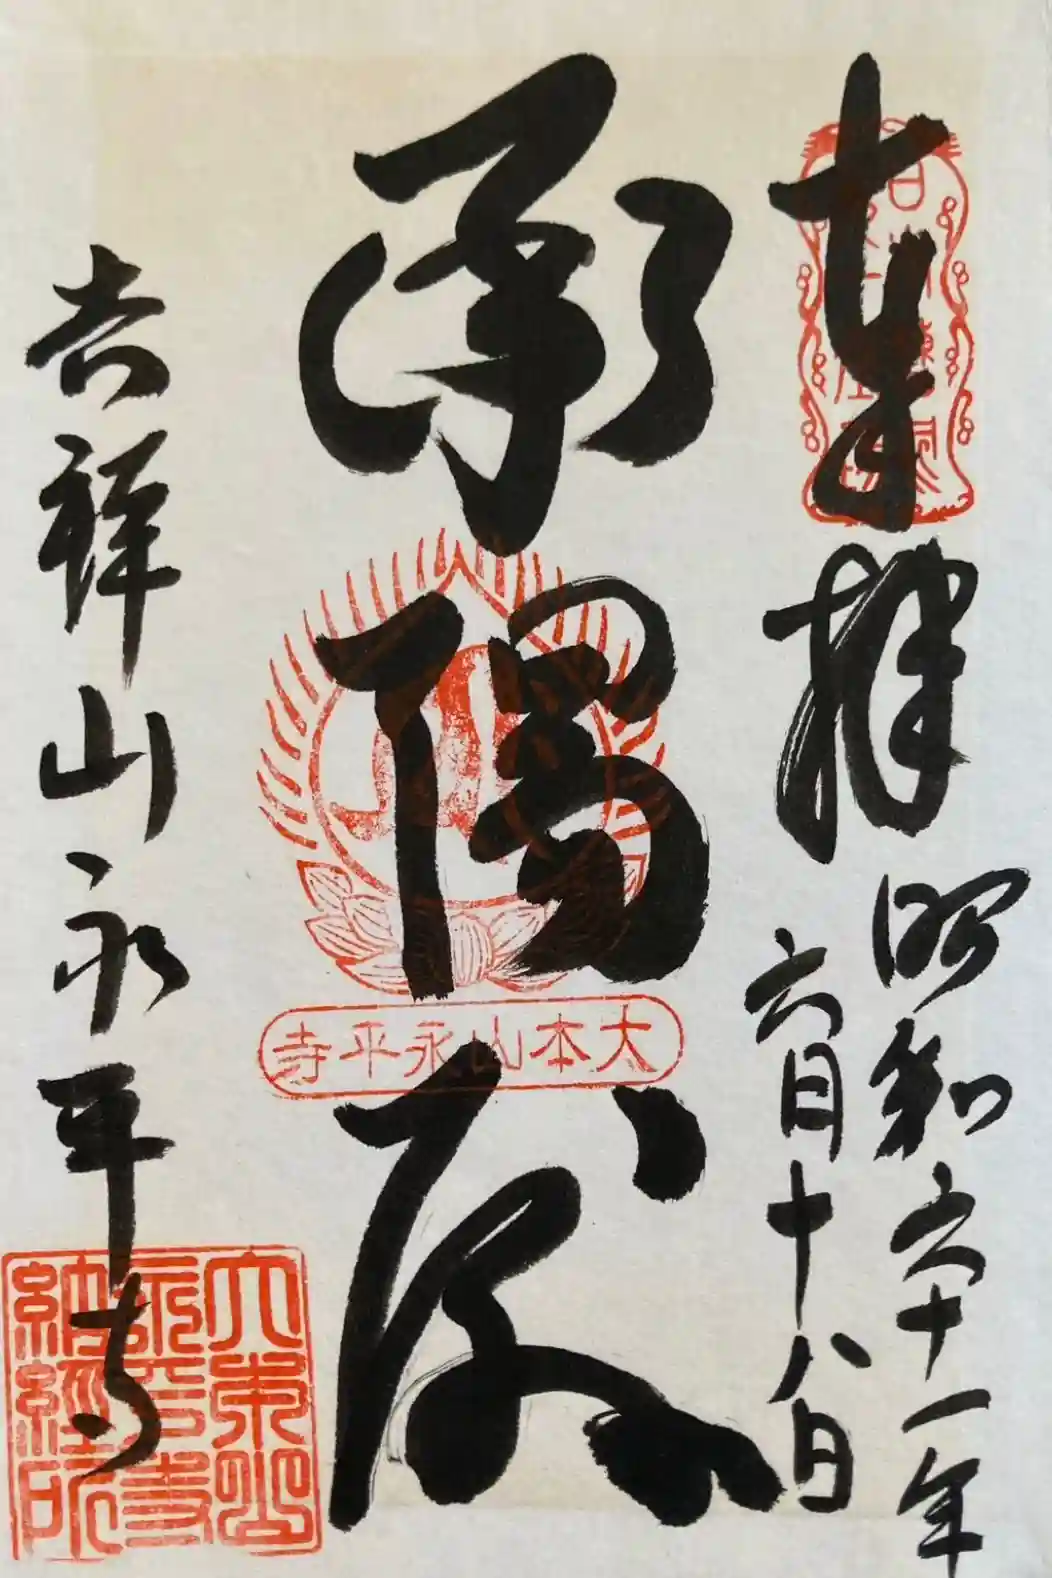 奉拝
昭和六十一年
六月十八日
承陽殿
大本山永平寺
吉祥山永平寺
大本山
永平寺
納経所